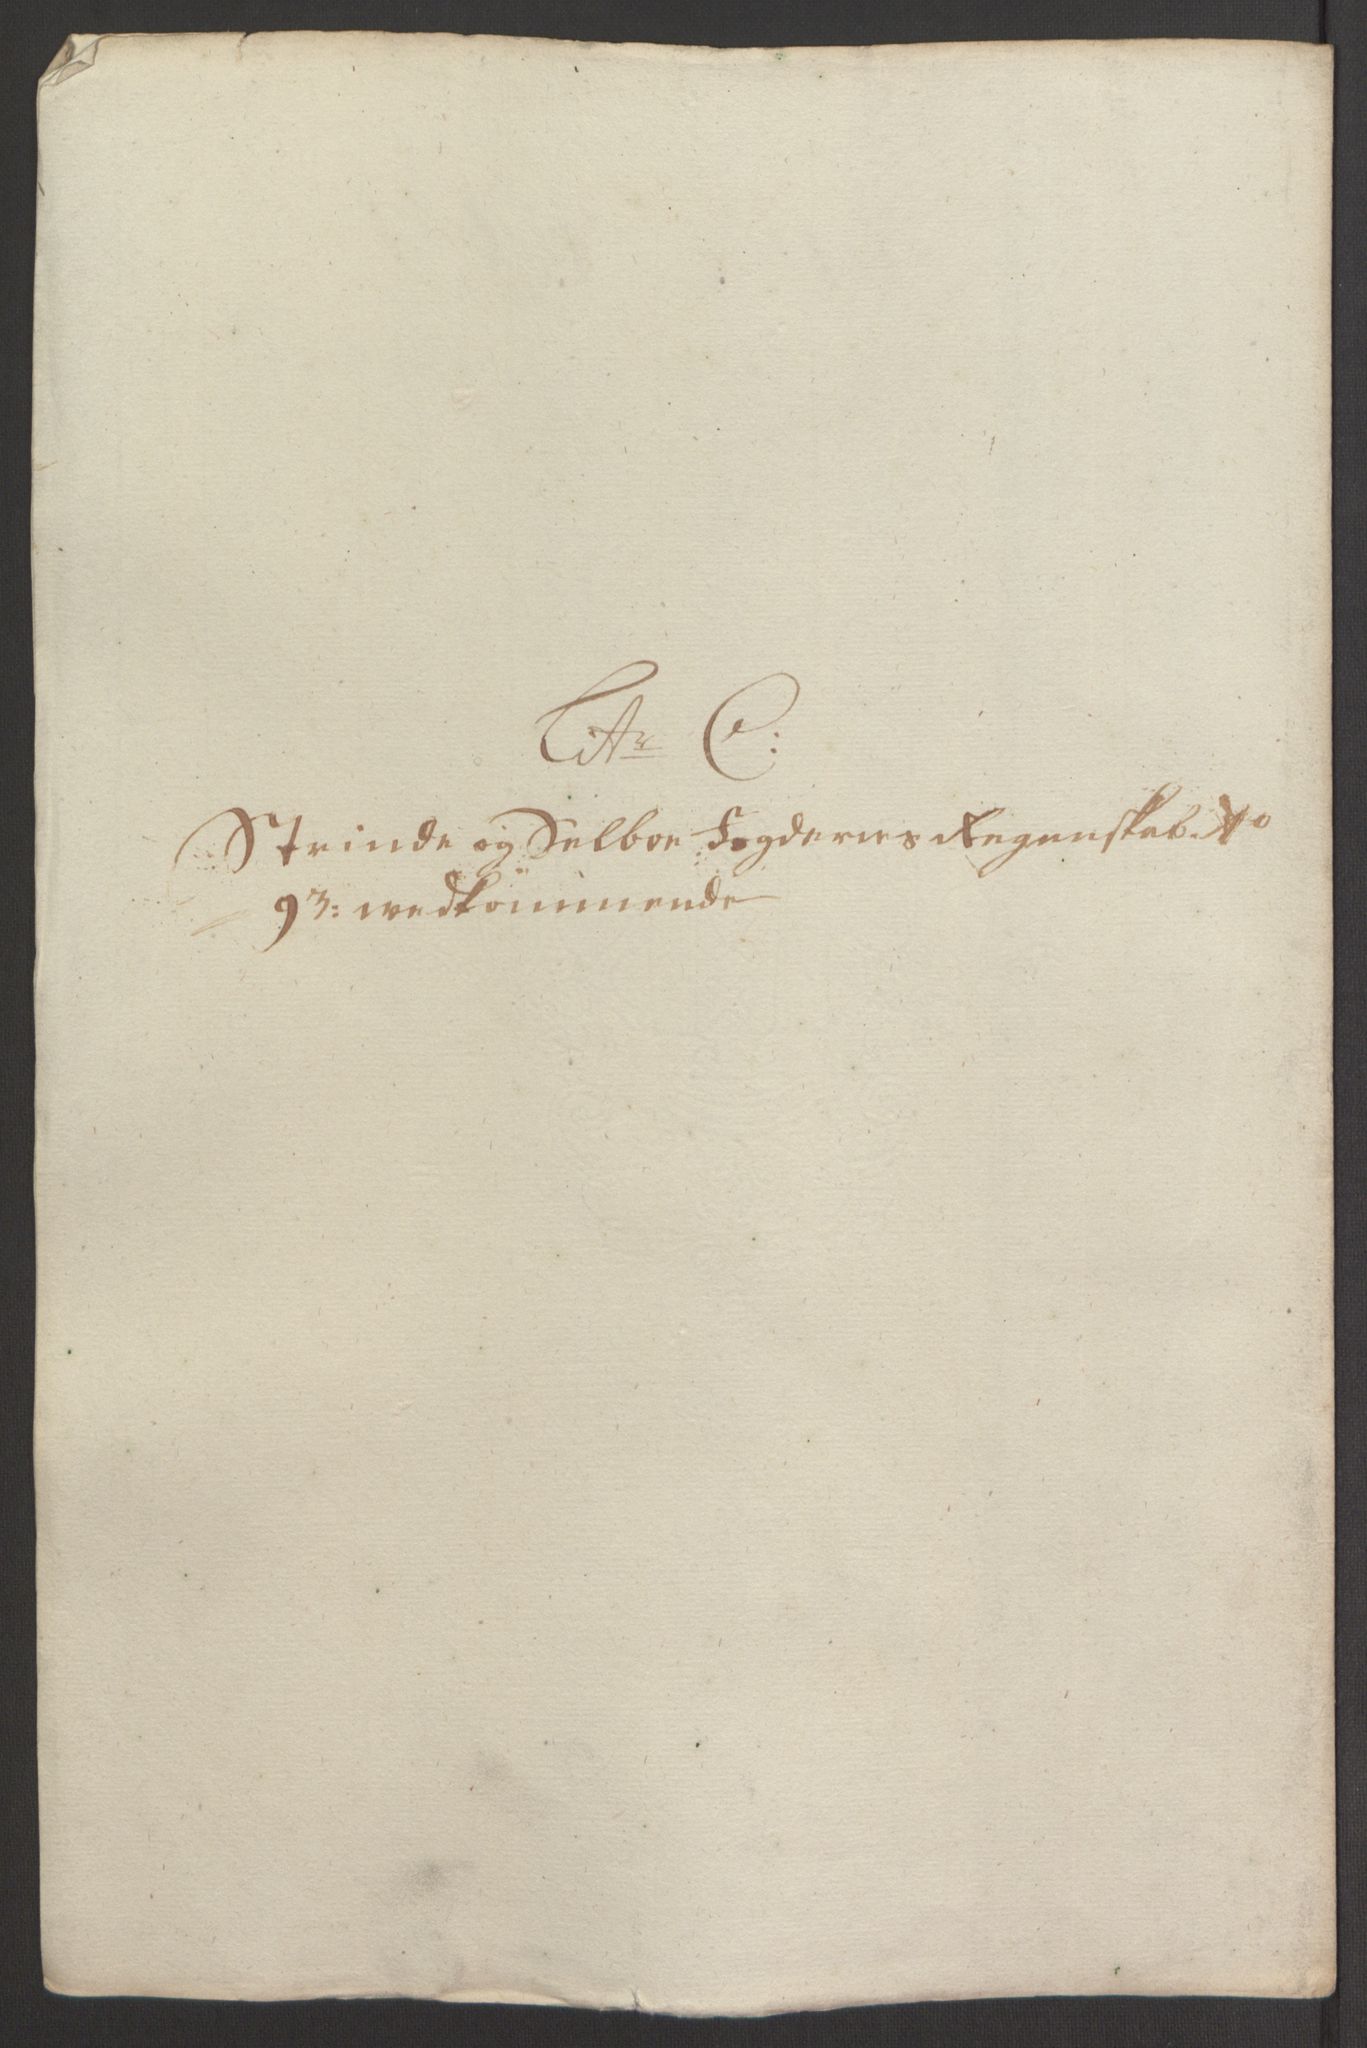 Litr C:
Strinde og Selboe Fogderies Regenskab Ao
93: wedkommende